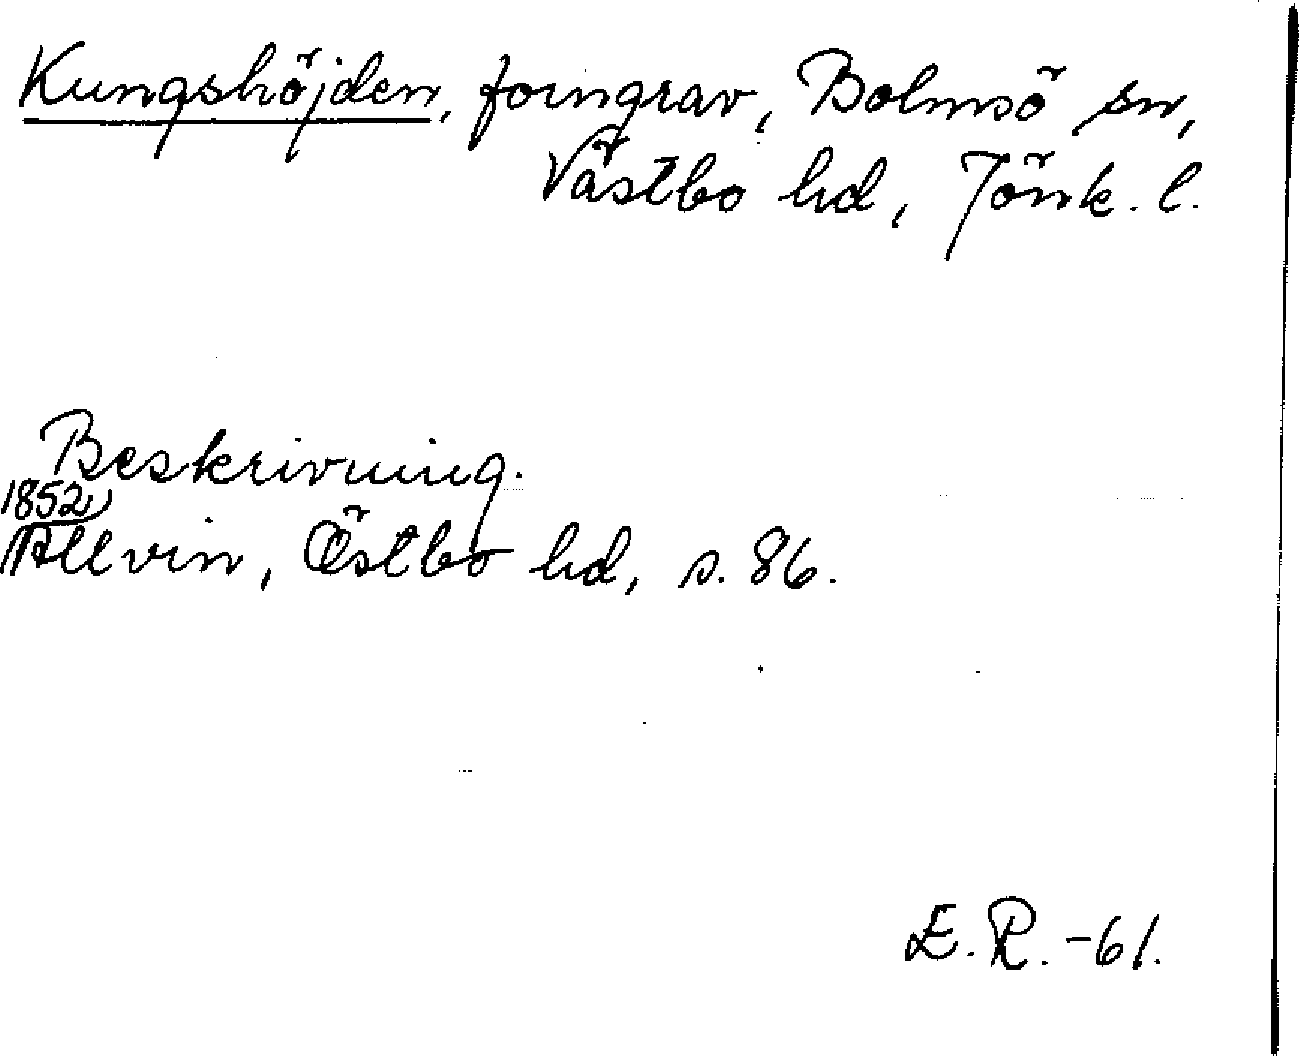 Kungshöjden, forngrav, Bolmsö sn,
Västbo hd, Jönk. l.
Beskrivning.
1852
Allvin, Östbo hd, s. 86.
E. R. -61.